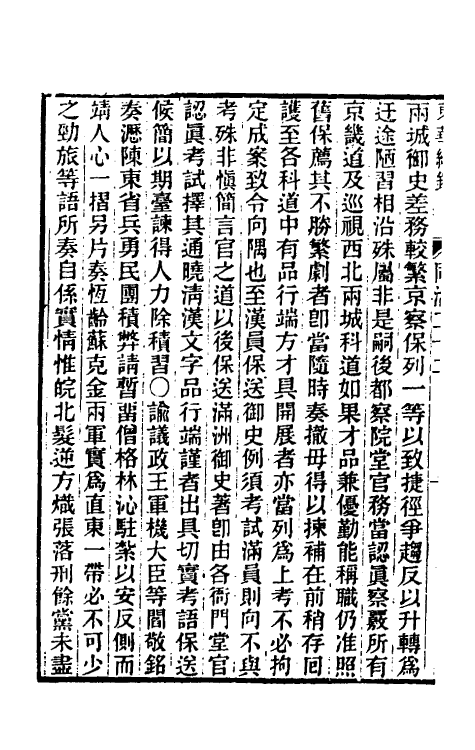 兩城御史差務較繁京察保列一等以致捷徑爭趨反以升轉爲
迂途陋習相沿殊屬非是嗣後都察院堂官務當認眞察覈所有
京畿道及巡視西北兩城科道如果才品兼優勤能稱職仍准照
舊保薦其不勝繁劇者卽當隨時奏撤毋得以揀補在前稍存回
護至各科道中有品行端方才具開展者亦當列爲上考不必拘
定成案致令向隅也至漢員保送御史例須考試滿員則向不與
考殊非愼簡言官之道以後保送滿洲御史著卽由各衙門堂官
認眞考試擇其通曉淸漢文字品行端謹者出具切實考語保送
候簡以期臺諫得人力除積習〇諭議政王軍機大臣等閻敬銘
奏瀝陳東省兵勇民團積弊請暫留僧格林沁駐紮以安反側而
靖人心一摺另片奏恆齡蘇克金兩軍實爲直東一帶必不可少
之勁旅等語所奏自係實情惟皖北髮逆方熾張落刑餘黨未盡